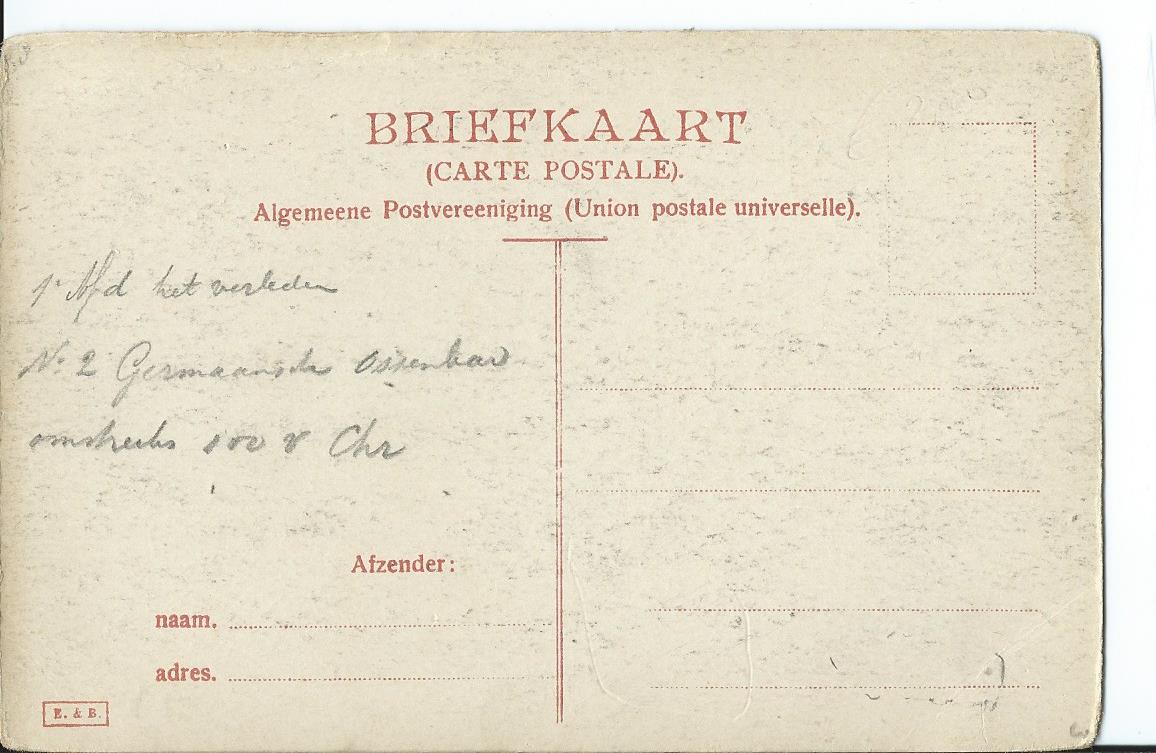 BRIEFKAART
(CARTE POSTALE).
Algemeene Postvereeniging (Union postale universelle).
1e Afd het verleden
No 2 Germaansche Ossenkar
omstreeks 100 v Chr
Afzender:
naam.
adres.
E. & B.